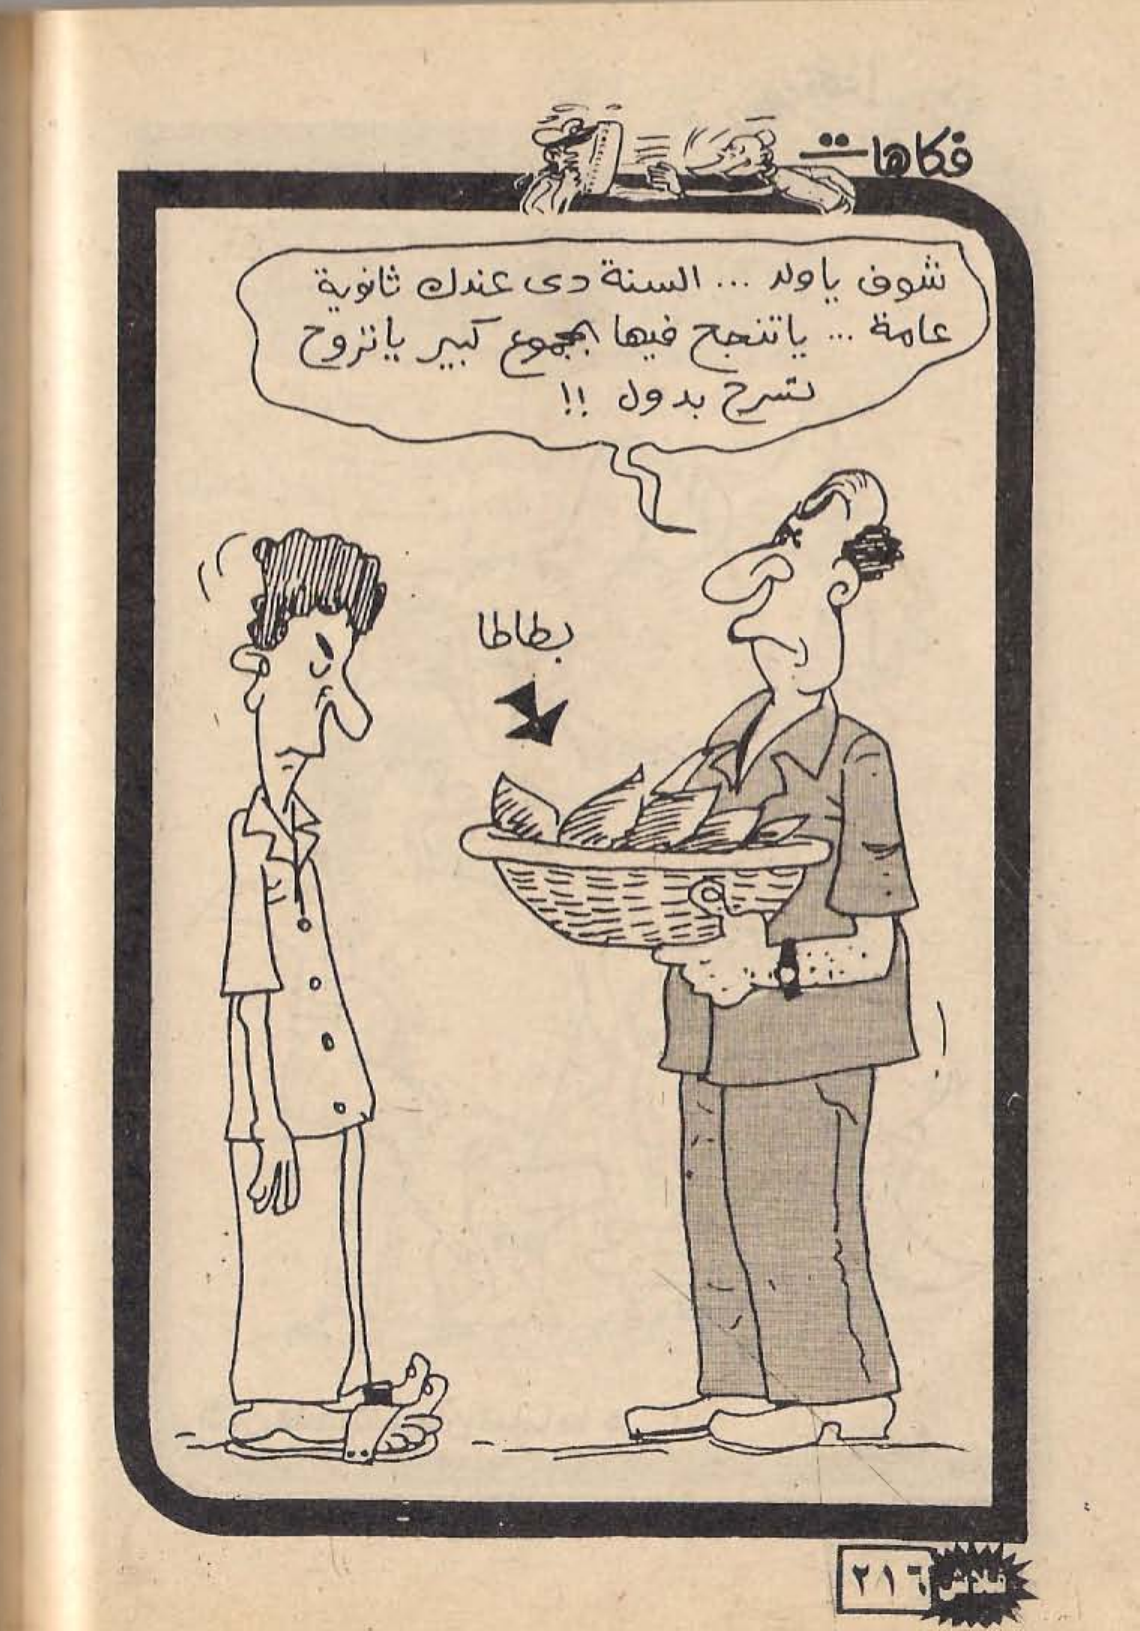 فكاهات
شوف ياولد ... السنة دى عندك ثانوية
عامة ... ياتنجح فيها بمجموع كبير ياتروح
تسرح بدول !!
بطاطا
فلاش ٢١٦